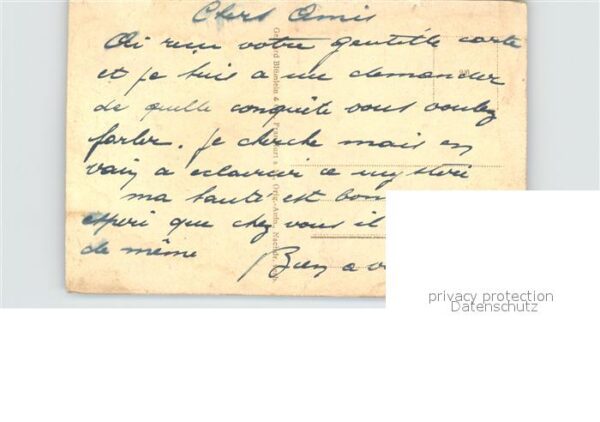 Chers Amis
Ai reçu votre gentille carte
et je suis a me demander
de quelle conquête vous voulez
parler. je cherche mais en
vain a eclaircir ce mystère
ma santé est bon
espère que chez vous il
de même
Bien a v
privacy protection
Datenschutz